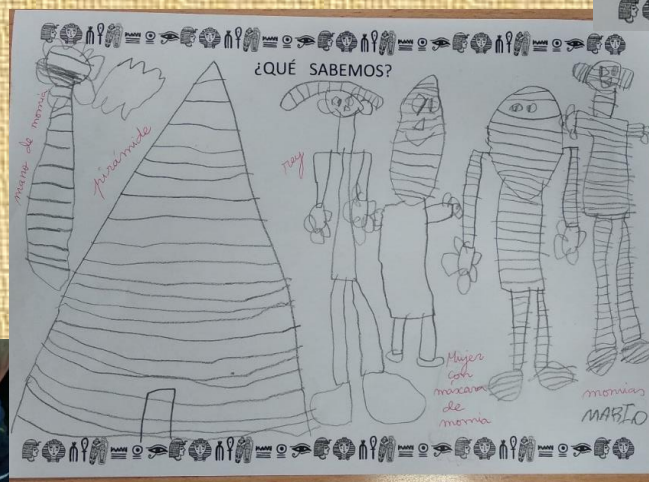 ¿QUÉ SABEMOS?
mano de momia
pirámide
rey
Mujer
con
máscara
de
momia
momias
MARIO